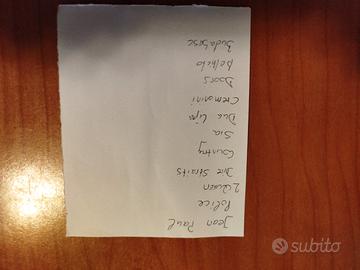 Jean Paul
Police
2 Queen
Dire Straits
Country
Sia
Dua Lipa
Cremonini
Doors
subito